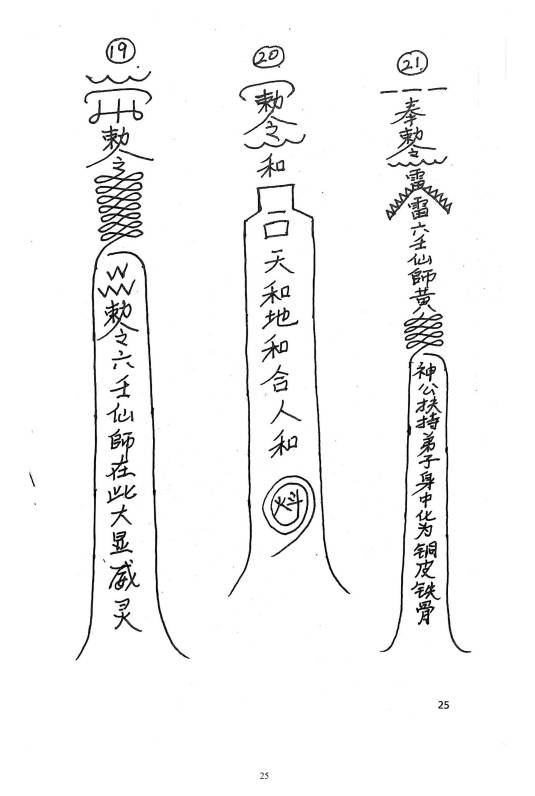 ⑲
敕令
敕令六壬仙師在此大显威灵
⑳
敕令
和
天和地和合人和
㉑
奉敕令
雷
雷六壬仙師黄
神公扶持弟子身中化为铜皮铁骨
25
25